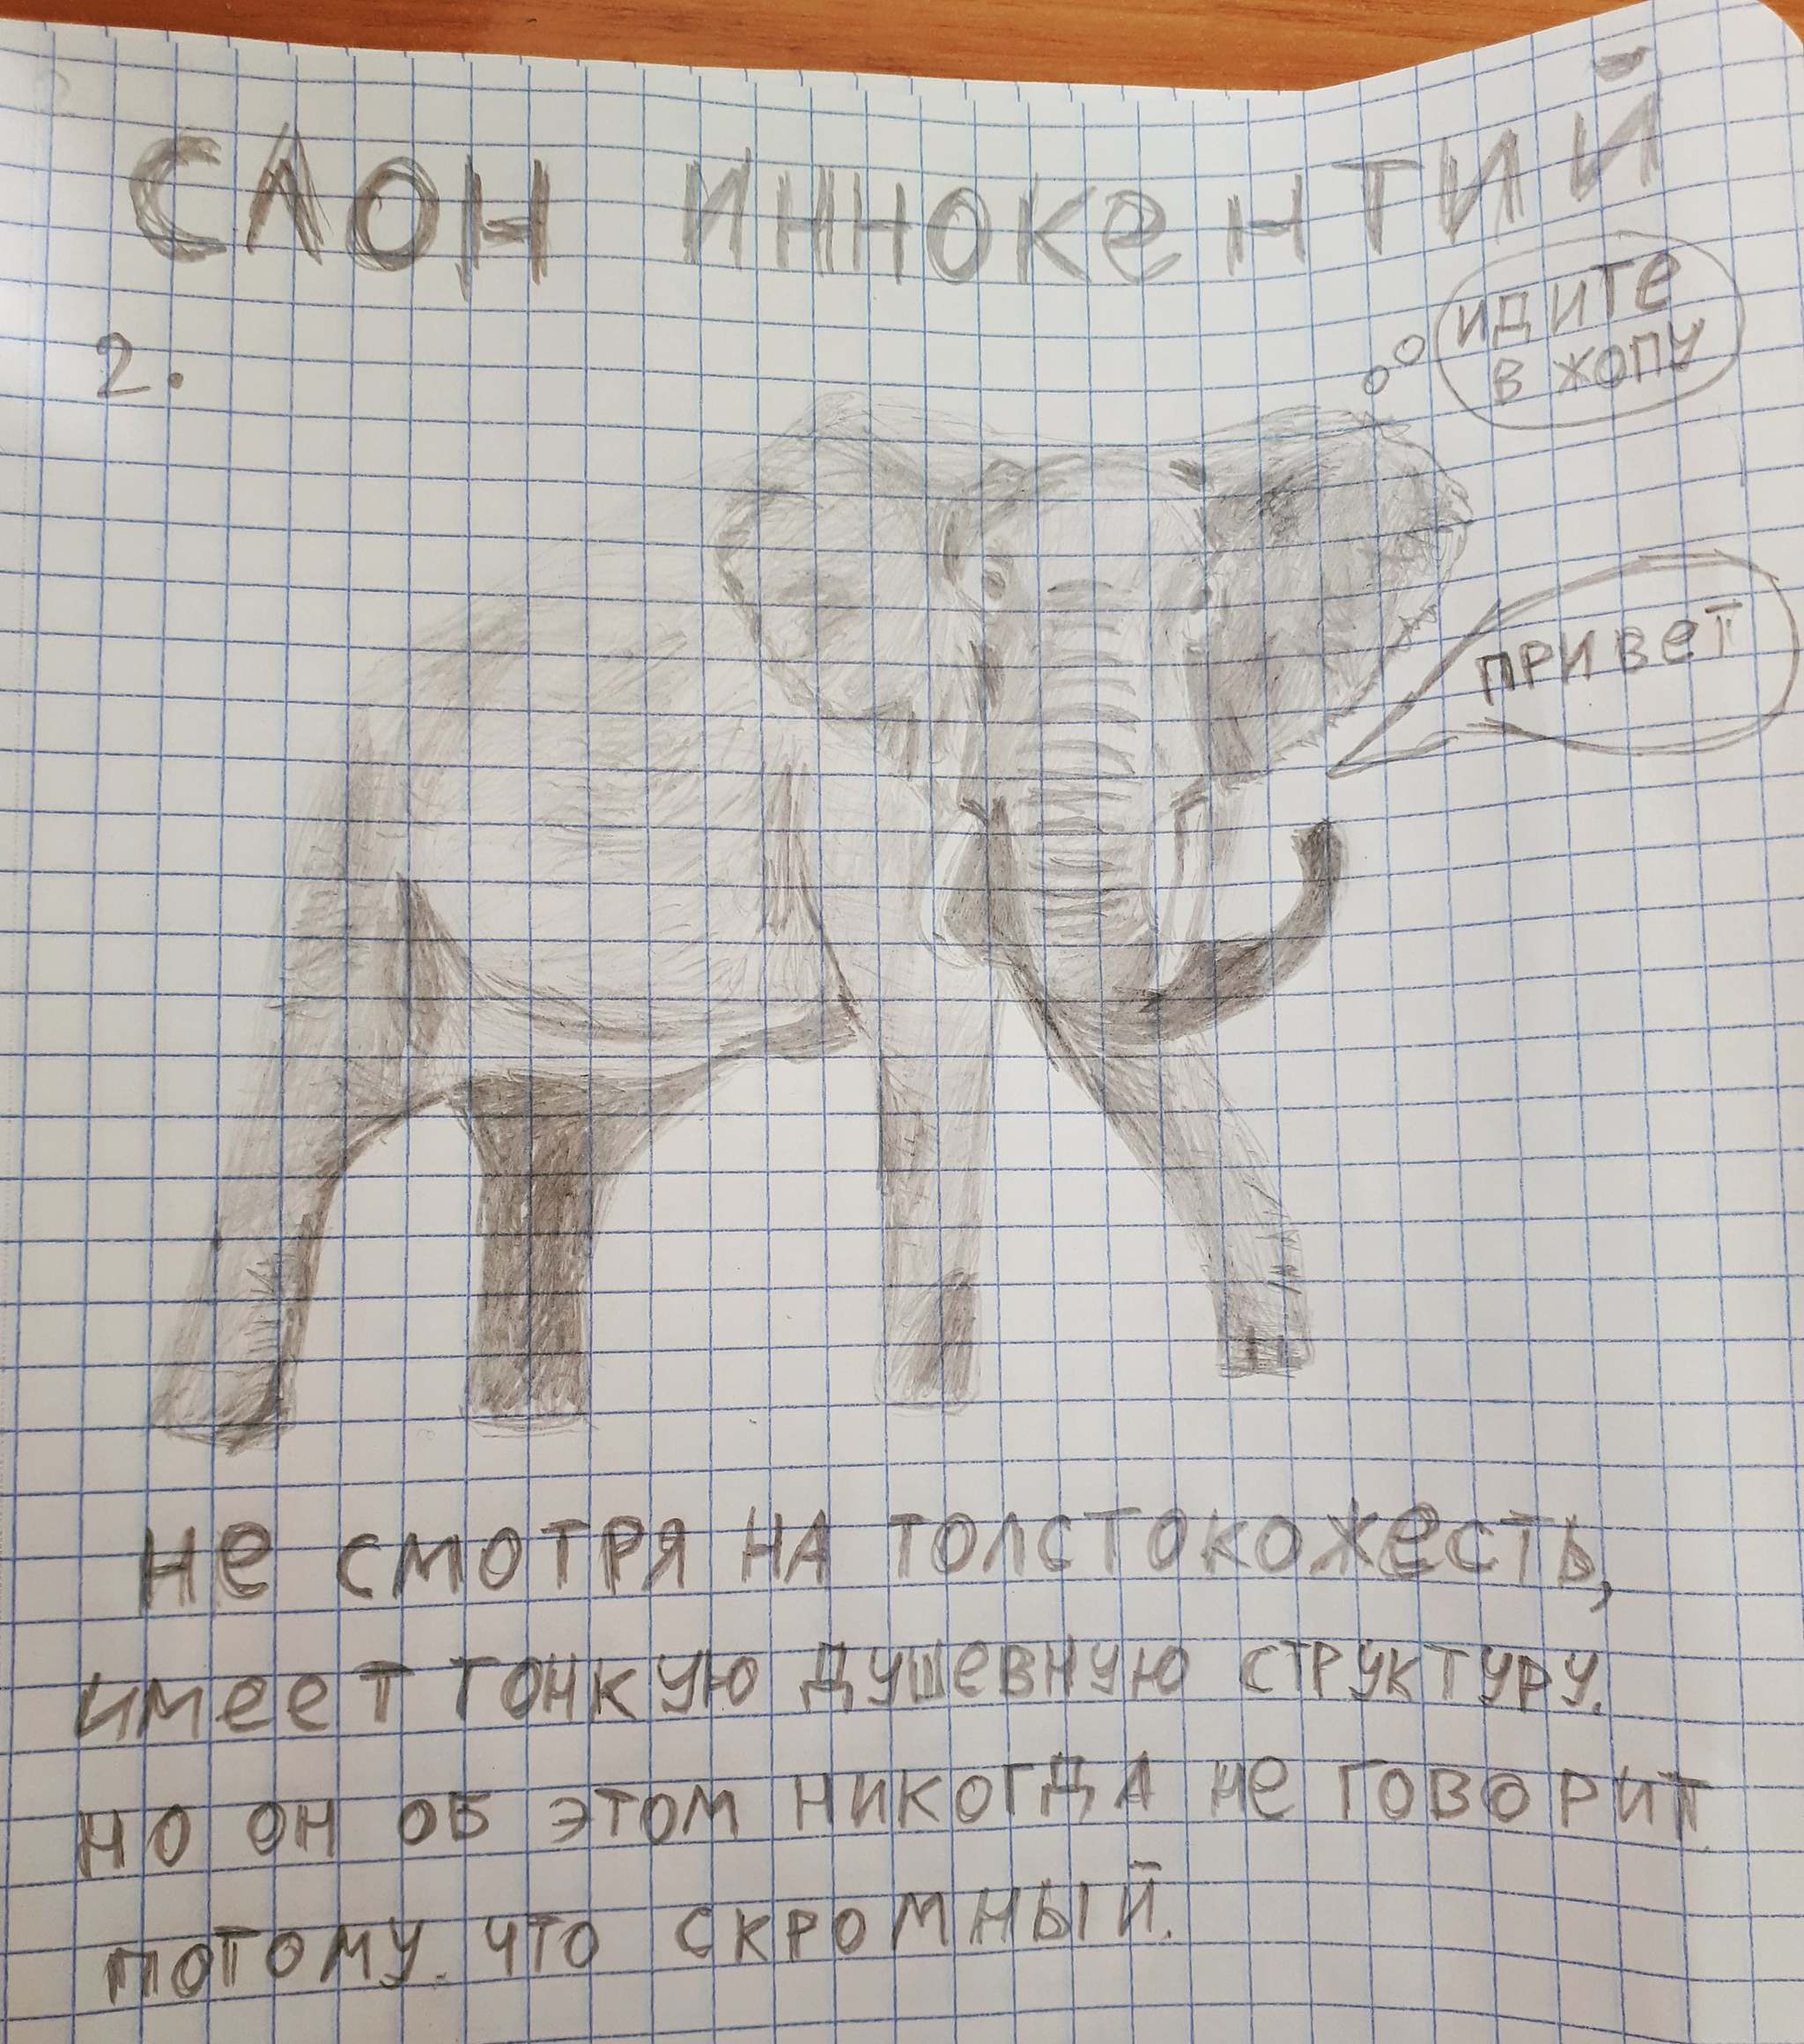 СЛОН ИННОКеНТИЙ
2.
идите
в жопу
привет
Не смотря на толстокожесть,
имеет тонкую душевную структуру.
но он об этом никогда не говорит
потому. что скромный.